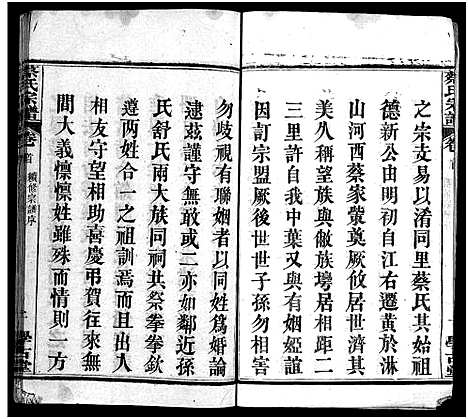 之宗支易以淆同里蔡氏其始祖
德新公由明初自江右遷黃於淋
山河西蔡家䕫奠厥攸居世濟其
美久稱望族與敝族塲居相距二
三里許我本中葉又與有姻婭誼
因訂宗盟厥後世世子孫勿相害
勿歧視有聯姻者以同姓爲婚論
逮茲謹守無敢或二亦如鄰近孫
氏舒氏兩大族同其祭拳拳欽
遵兩姓合一之祖訓焉而且出入
相友守望相助喜慶弔賀往來無
間大義懍懍姓雖殊而情則一方
蔡氏宗譜 卷首 續修宗譜序
蔡氏宗譜 卷首